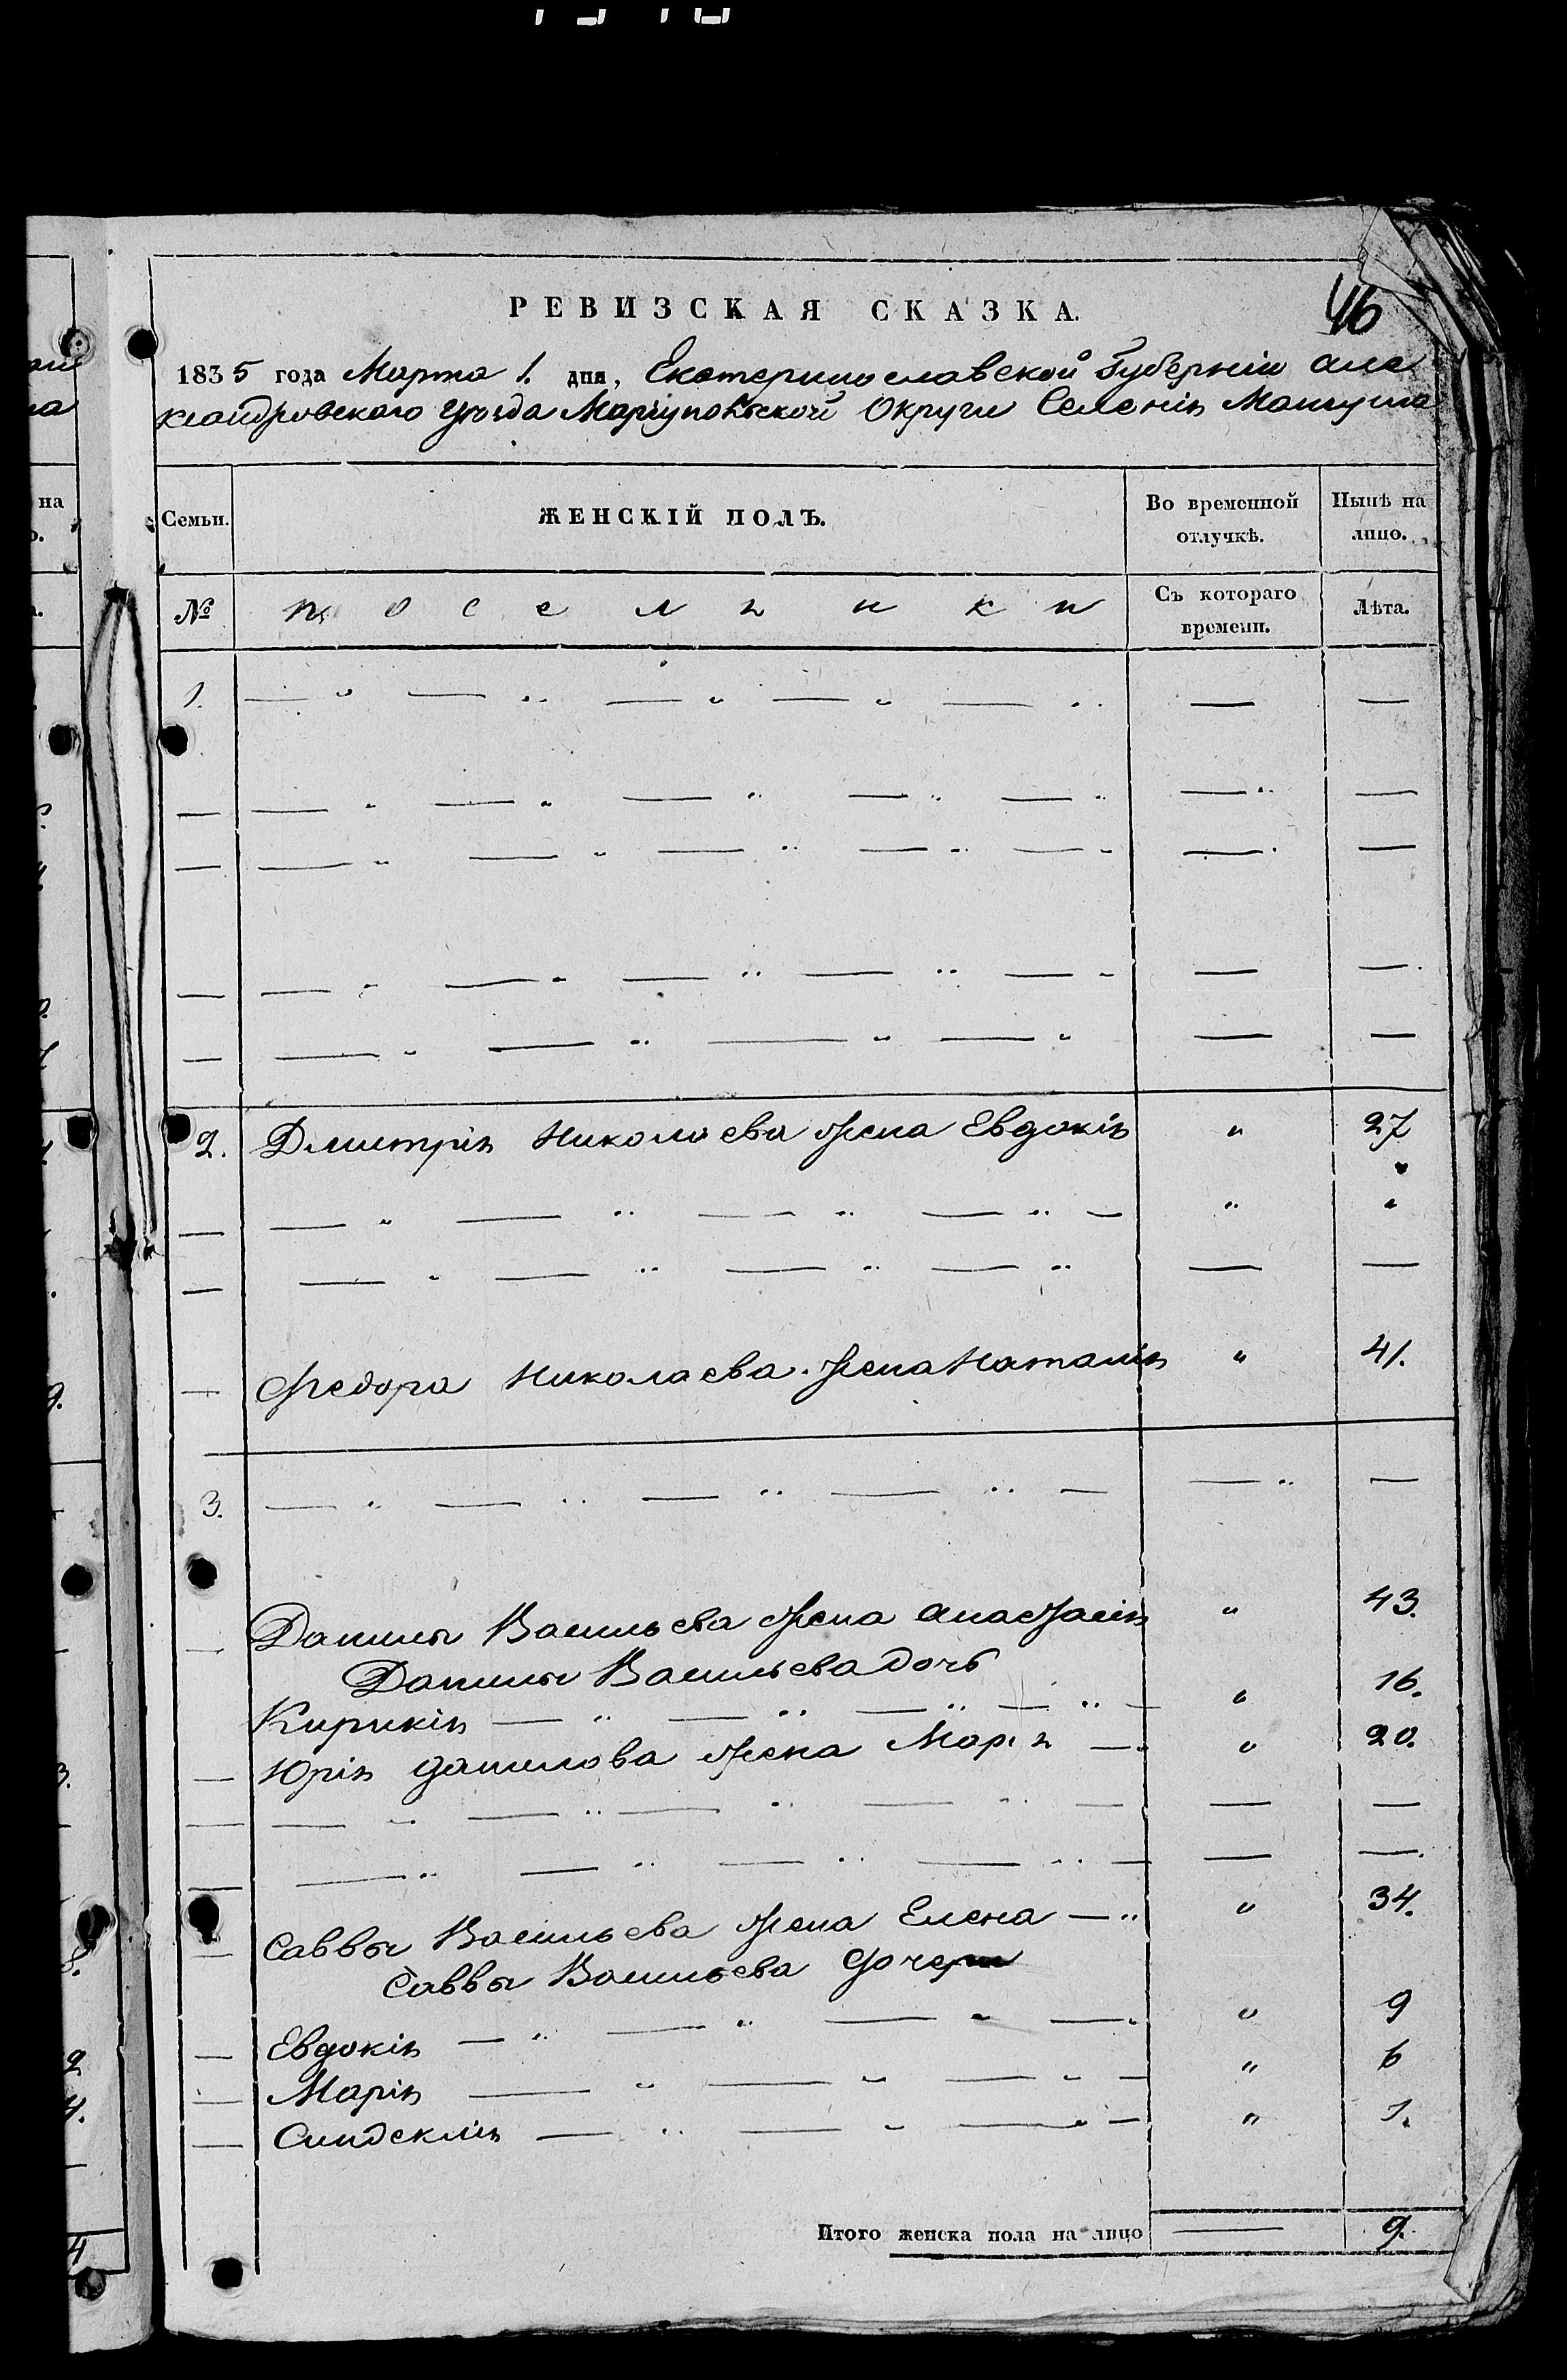 РЕВИЗСКАЯ СКАЗКА.
46
1835 года Марта 1. дня, Екатеринославской Губерніи Але
ксандровского уѣзда Маріупольской Округи Селенія Мангуша
Семьи.
ЖЕНСКІЙ ПОЛЪ.
Во временной отлучкѣ.
Нынѣ на лицо.
№
поселянки
Съ котораго времени.
Лѣта.
1. — „ — „ — „ — „ — „ — —
— — „ — „ — „ — „ — „ — „ —
— — „ — „ — „ — „ — „ — —
— — „ — „ — „ — „ — „ — —
— — „ — „ — „ — „ — —
2. Дмитрія Николаева жена Евдокія „ 27
— — „ — „ — „ — „ — „ „
— — „ — „ — „ — „ — —
— Федора Николаева жена Наталія „ 41.
3. — „ — „ — „ — „ — — „ —
— Данилы Васильева жена Анастасія „ 43.
Данилы Васильева дочь
Кирикія — „ — „ — „ — „ — „ 16.
— Юрія Данилова жена Марія — „ 20.
— — „ — „ — „ — „ — — —
— — „ — „ — „ — „ — — —
— Саввы Васильева жена Елена — „ „ 34.
Саввы Васильева дочери
— Евдокія — „ — „ — „ — „ „ 9
— Марія — „ — „ — „ — „ 6
— Синдеклія — „ — „ — „ — „ 1.
Итого женска пола на лицо — 9.